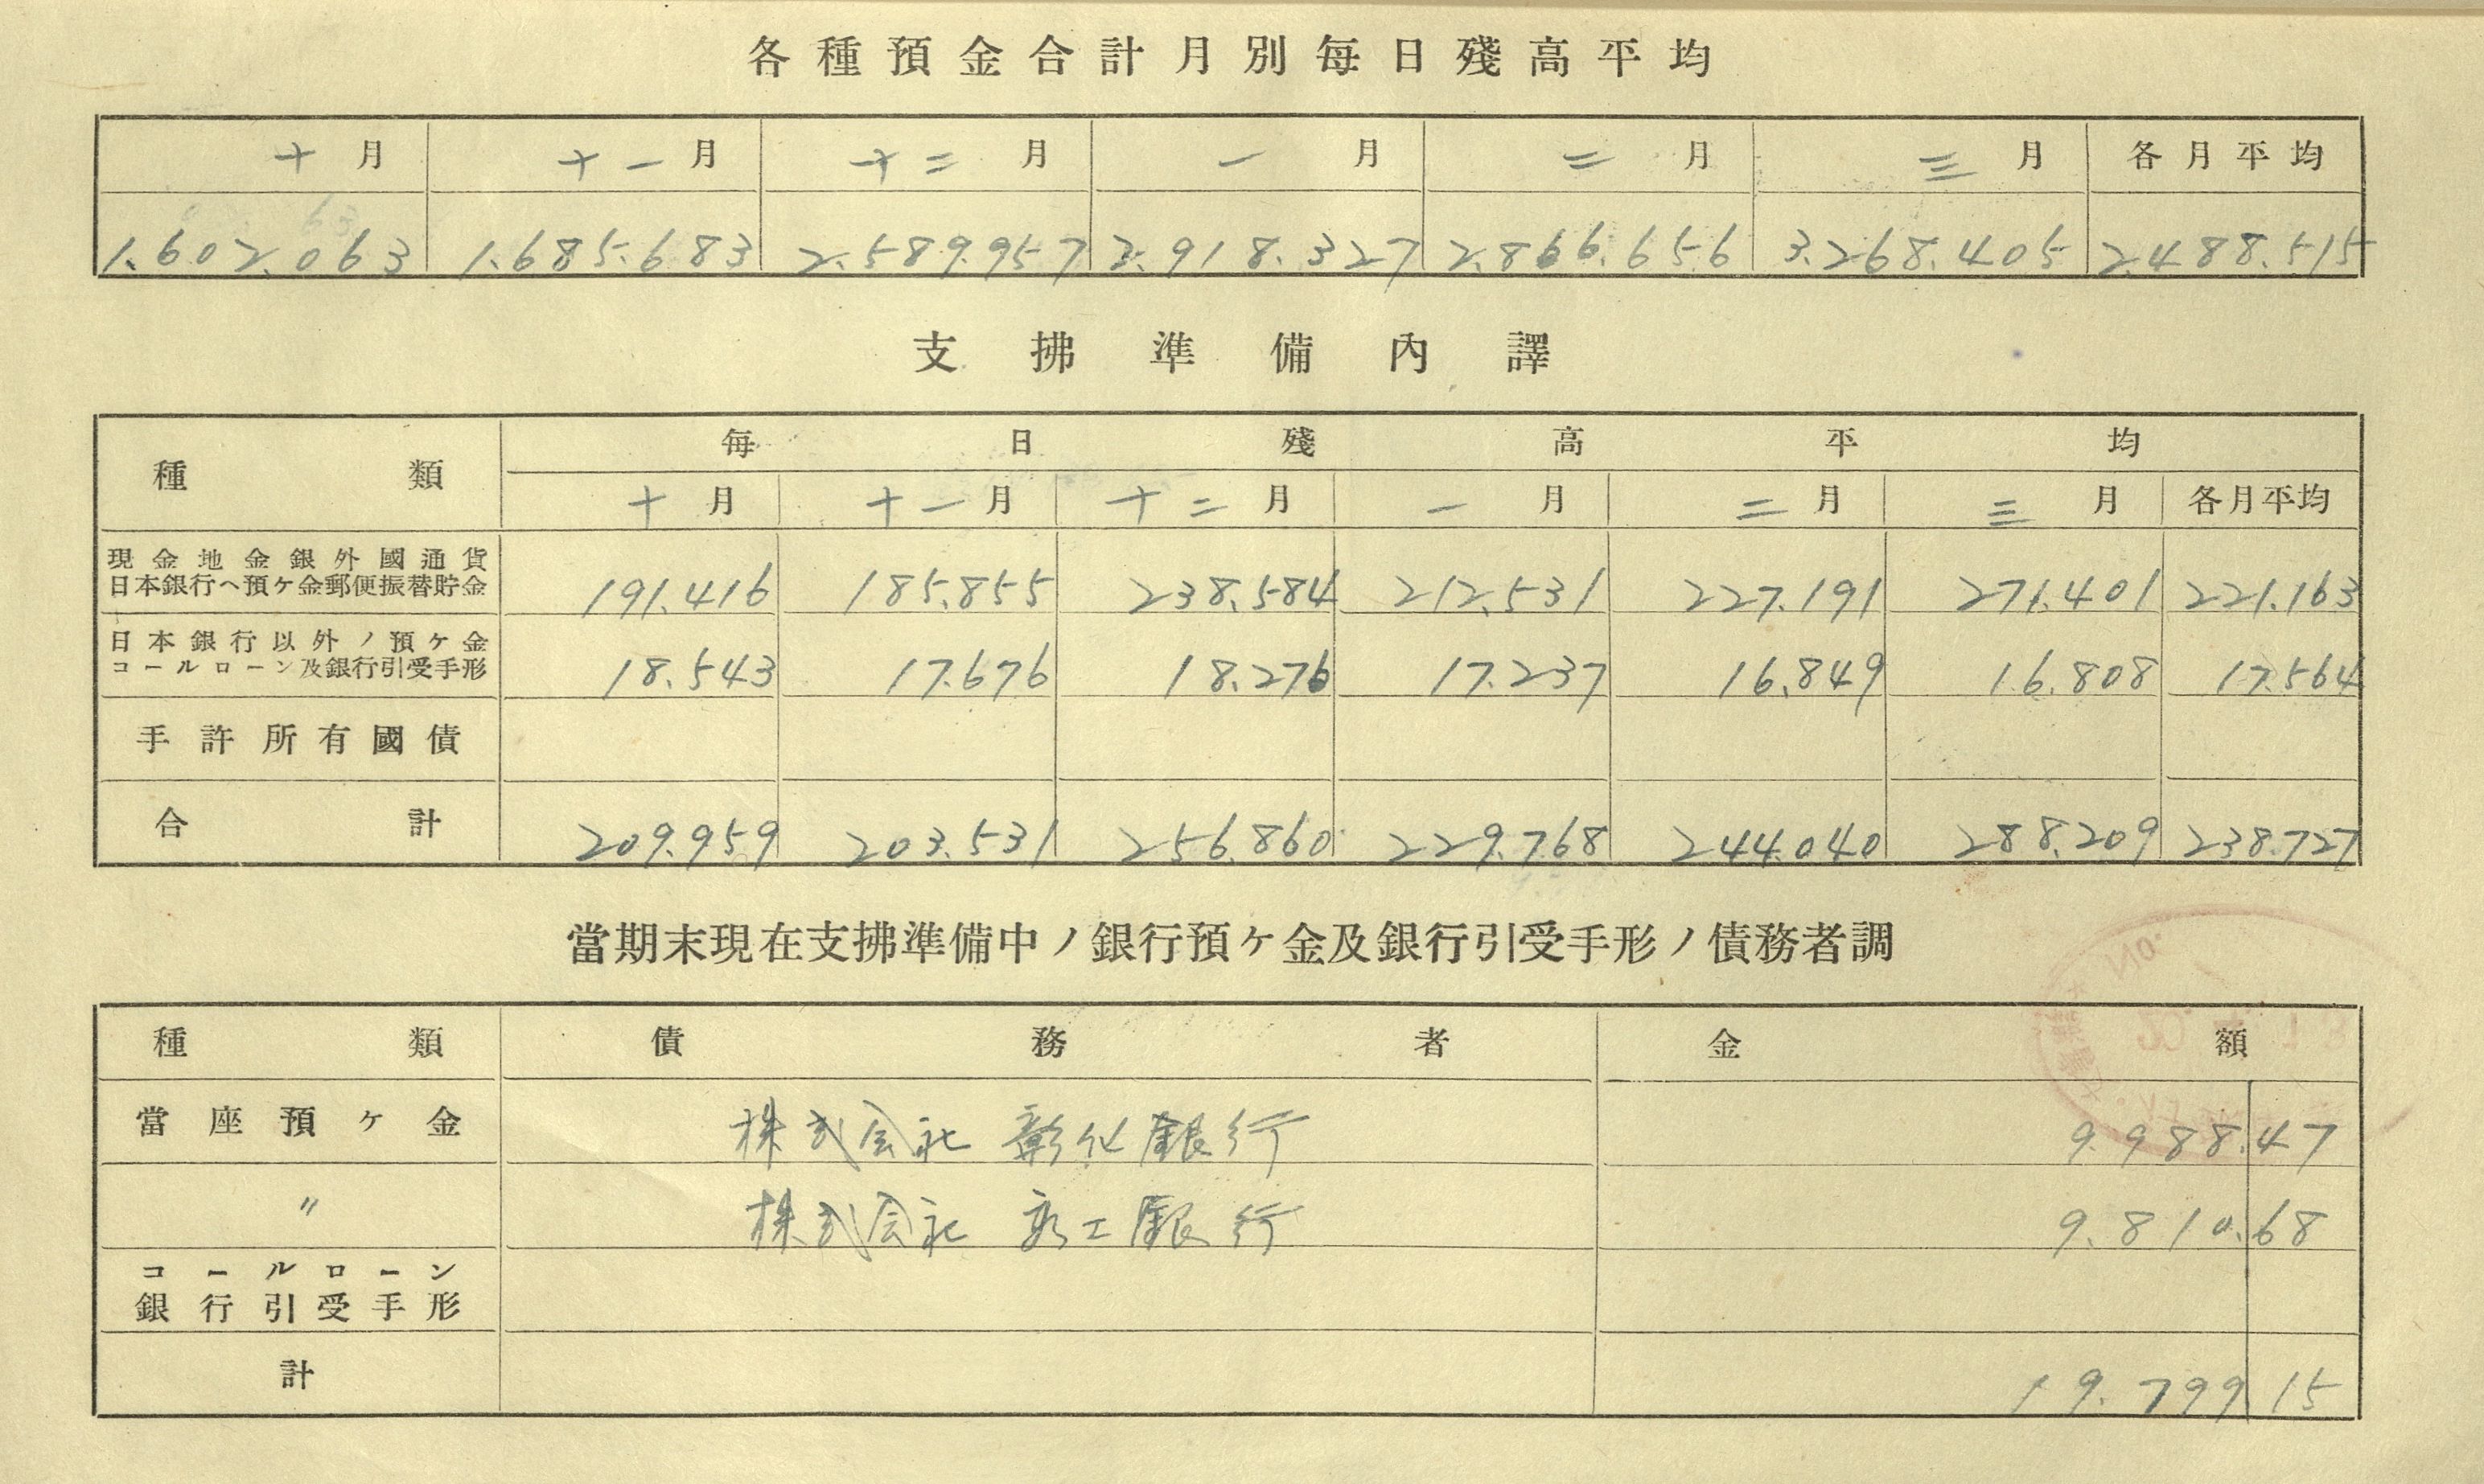 各種預金合計月別每日殘高平均
十月 十一月 十二月 一月 二月 三月 各月平均
1.602.063 1.685.683 2.589.957 2.918.327 2.866.656 3.268.405 2.488.515
支拂準備內譯
種類 每日殘高平均
十月 十一月 十二月 一月 二月 三月 各月平均
現金地金銀外國通貨
日本銀行ヘ預ケ金郵便振替貯金 191.416 185.855 238.584 212.531 227.191 271.401 221.163
日本銀行以外ノ預ケ金
コールローン及銀行引受手形 18.543 17.676 18.276 17.237 16.849 16.808 17.564
手許所有國債
合計 209.959 203.531 256.860 229.768 244.040 288.209 238.727
當期末現在支拂準備中ノ銀行預ケ金及銀行引受手形ノ債務者調
種類 債務者 金額
當座預ケ金 株式会社 彰化銀行 9.988.47
〃 株式会社 銀行 9.810.68
コールローン
銀行引受手形
計 19.799 15